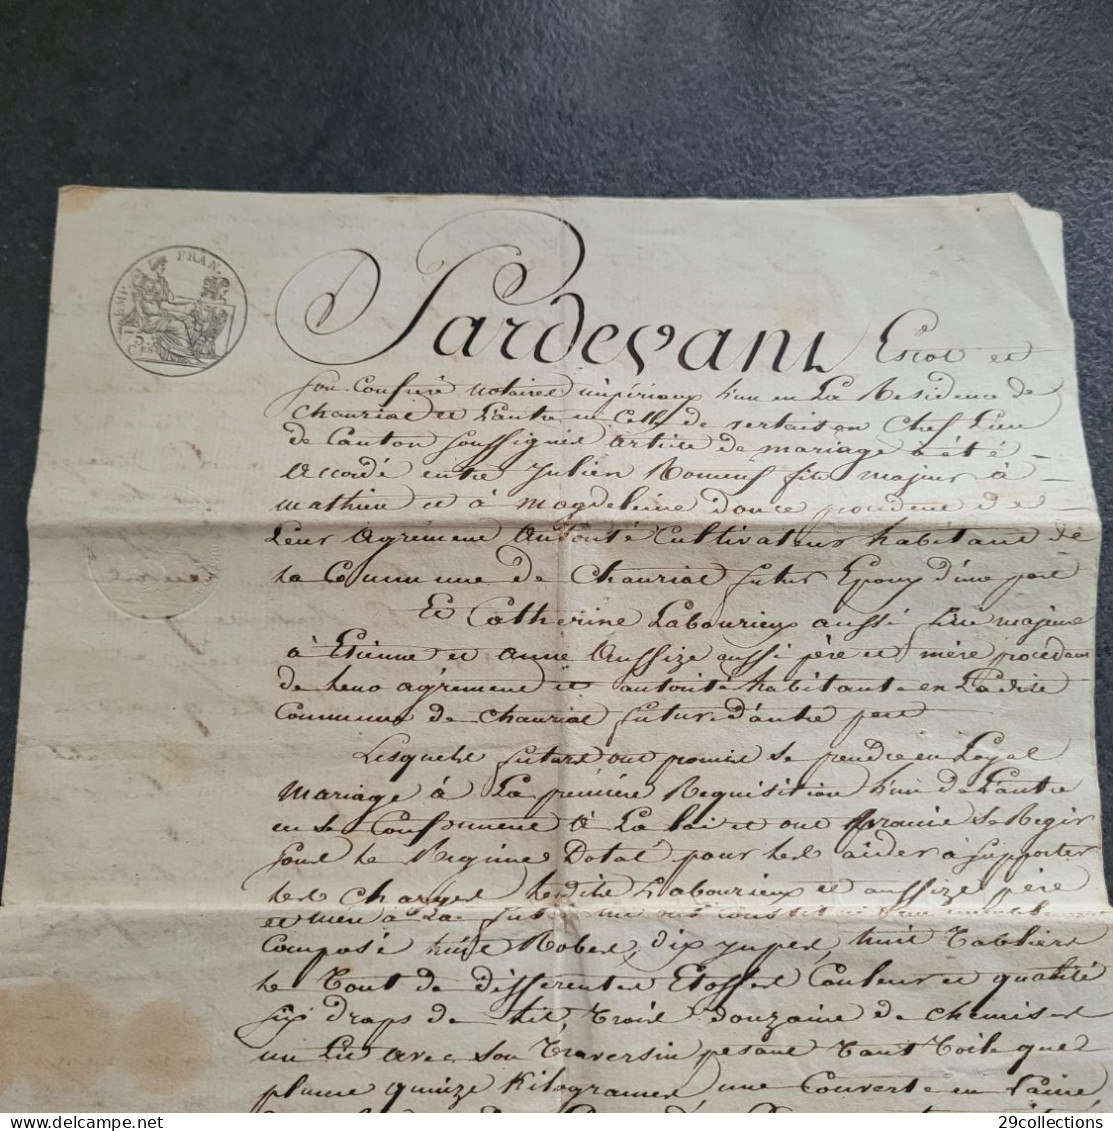 EMP. FRAN.
75 Ces
Pardevant Escot et
son Confrere notaires impériaux l'un en La Residence de
Chauriat et L'autre en Celle de vertaison Chef Lieu
de Canton soussignés Articles de mariage a été
Accordé entre Julien Romeuf fils majeur à
mathieu et à Magdeleine douce procedant de
Leur Agrément Autorité Cultivateur habitant de
la Commune de Chauriat futur Epoux d'une part
Et Catherine Labourieux aussi fille majeure
à Etienne et Anne Aussize aussi père et mère procédant
de leurs agrément et autorité habitante en Ladite
Commune de Chauriat future d'autre part
Lesquels futurs ont promis se prendre en Legal
Mariage à La première Requisition L'un de L'autre
en se Conformant à La loi et ont promis se Regir
sous le Regime Dotal pour les aider à supporter
les Charges lesdits Labourieux et aussize père
et mere à La
Composé huit Robes, dix jupes, huit Tabliers
le Tout de differentes Etoffes Couleurs et qualité
six draps de lit, Trois douzaine de chemises
un Lit avec son Traversin pesant Tant Toile que
plume quinze Kilogrames, une Couverte en Laine
29collections